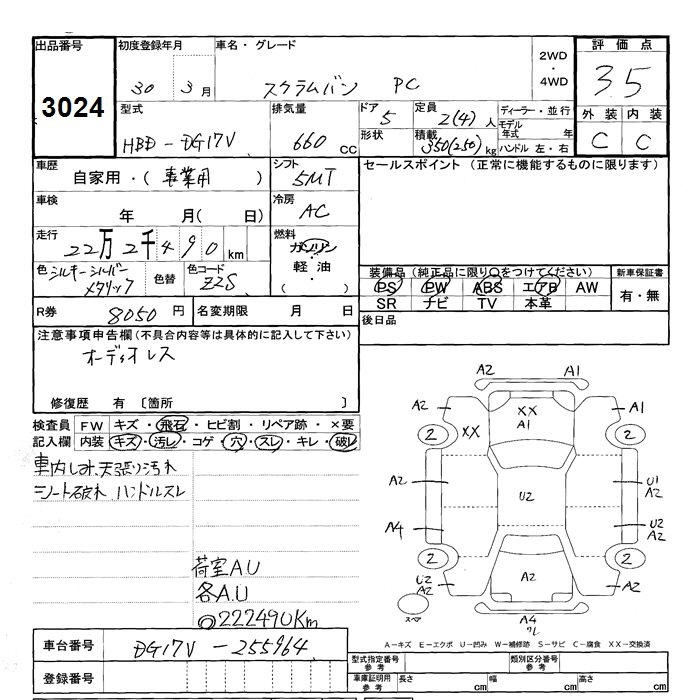 出品番号
3024
初度登録年月
30年 3月
車名・グレード
スクラムバン PC
2WD
・
4WD
評価点
3.5
外装 内装
C C
型式
HBD-DG17V
排気量
660 cc
ドア
5
形状
定員
2(4)人
積載
350(250)kg
ディーラー・並行
モデル年式 年
ハンドル 左・右
車歴
自家用・(事業用)
シフト
5MT
セールスポイント(正常に機能するものに限ります)
車検
年 月( 日)
冷房
AC
走行
22万2千490km
燃料
ガソリン
・
軽油
( )
色
シルキーシルバーメタリック
色替
色コード
Z2S
装備品(純正品に限り〇をつけてください)
PS PW ABS エアB AW
SR ナビ TV 本革
新車保証書
有・無
R券
8050円
名変期限 月 日
後日品
注意事項申告欄(不具合内容等は具体的に記入して下さい)
オーディオレス
修復歴 有 〔箇所 〕
検査員記入欄
FW キズ・飛石・ヒビ割・リペア跡・×要
内装 キズ・汚レ・コゲ・穴・スレ・キレ・破レ
車内しみ天張り汚れ
シート破れ ハンドルスレ
荷室A.U
各A.U
◎222490Km
A2 A1
A2 XX A1
A1
2 XX 2
A2 U2 U1
A2
A4 U2
A2
2 2
U2
A2 A2 U2
A2
スペア
A4
ワレ
A-キズ E-エクボ U-凹み W-補修跡 S-サビ C-腐食 XX-交換済
車台番号
DG17V-255964
登録番号
型式指定番号
参考
類別区分番号
参考
車庫証明用
参考
長さ cm 幅 cm 高さ cm